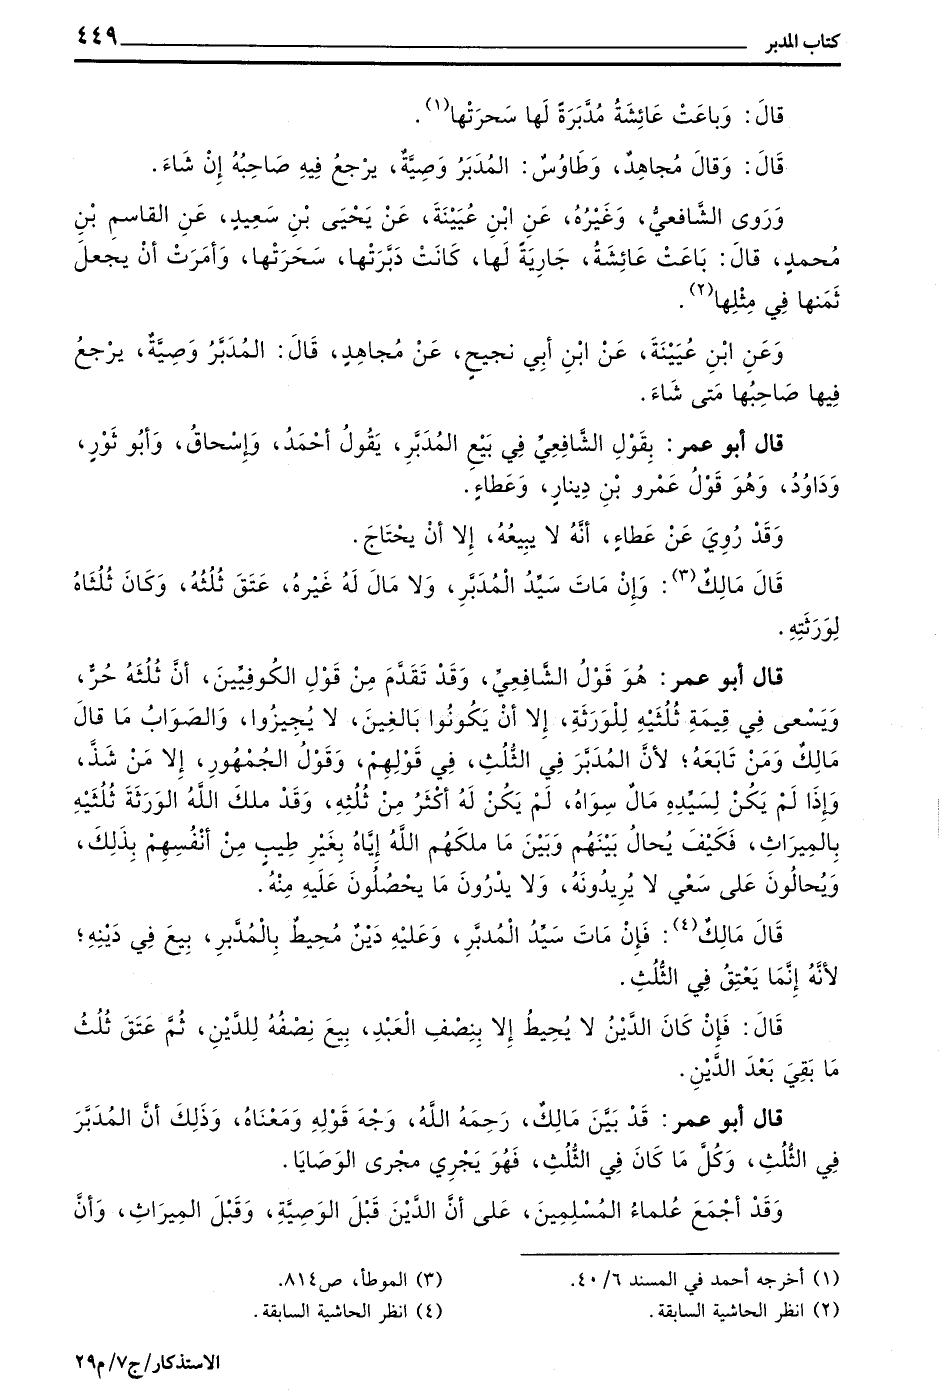 كتاب المدبر ٤٤٩
قالَ: وَباعَتْ عَائِشَةُ مُدَّبَرَةً لَها سَحرَتْها(١).
قَالَ: وَقالَ مُجاهِدٌ، وَطَاوُسٌ: المُدَبَرُ وَصِيَّةٌ، يرْجعُ فِيهِ صَاحِبُهُ إِنْ شَاءَ.
وَرَوى الشَّافعيُّ، وَغَيْرُهُ، عَنِ ابْنِ عُيَيْنَةَ، عَنْ يَحْيَى بْنِ سَعِيدٍ، عَنِ القَاسمِ بْنِ
مُحمدٍ، قالَ: بَاعَتْ عَائِشَةُ، جَارِيَةً لَها، كَانَتْ دَبَّرَتْها، سَحَرَتْها، وَأمَرَتْ أنْ يجعلَ
ثَمَنها فِي مِثْلِها(٢).
وَعَنِ ابْنِ عُيَيْنَةَ، عَنْ ابْنِ أبي نجيحٍ، عَنْ مُجاهِدٍ، قَالَ: المُدَبَّرُ وَصِيَّةٌ، يرْجعُ
فِيها صَاحِبُها مَتى شَاءَ.
قال أبو عمر: بِقَوْلِ الشَّافِعِيِّ فِي بَيْعِ المُدَبَّرِ، يَقُولُ أحْمَدُ، وَإِسْحاقُ، وَأبُو ثَوْرٍ،
وَدَاوُدُ، وَهُوَ قَوْلُ عَمْرِو بْنِ دِينارٍ، وَعَطاءٍ.
وَقَدْ رُوِيَ عَنْ عَطاءٍ، أنَّهُ لا يبِيعُهُ، إلا أنْ يحْتَاجَ.
قَالَ مَالِكٌ(٣): وَإِنْ مَاتَ سَيِّدُ الْمُدَبَّرِ، وَلا مالَ لَهُ غَيْرهُ، عَتَقَ ثُلُثُهُ، وَكَانَ ثُلُثَاهُ
لِوَرَثَتِهِ.
قال أبو عمر: هُوَ قَوْلُ الشَّافِعِيِّ، وَقَدْ تَقَدَّمَ مِنْ قَوْلِ الكُوفِيِّينَ، أنَّ ثُلُثَهُ حُرٌّ،
وَيَسْعى فِي قِيمَةِ ثُلُثَيْهِ لِلْوَرَثَةِ، إلا أنْ يَكُونُوا بَالغِينَ، لا يُجِيزُوا، وَالصَوَابُ مَا قالَ
مَالِكٌ وَمَنْ تَابَعَهُ؛ لأنَّ المُدَبَّرَ فِي الثُّلُثِ، فِي قَوْلِهِمْ، وَقَوْلُ الجُمْهُورِ، إلا مَنْ شَذَّ،
وَإِذَا لَمْ يَكُنْ لِسَيِّدِهِ مَالٌ سِوَاهُ، لَمْ يَكُنْ لَهُ أكْثَرُ مِنْ ثُلُثِهِ، وَقَدْ ملكَ اللَّهُ الوَرَثَةَ ثُلُثَيْهِ
بِالمِيرَاثِ، فَكَيْفَ يُحالُ بَيْنَهُم وَبَيْنَ مَا ملكَهُم اللَّهُ إِيَّاهُ بِغَيْرِ طِيبٍ مِنْ أنْفُسِهِمْ بِذَلِكَ،
وَيُحالُونَ عَلى سَعْيٍ لا يُرِيدُونَهُ، وَلا يدْرُونَ مَا يحْصُلُونَ عَلَيهِ مِنْهُ.
قَالَ مَالِكٌ(٤): فَإِنْ مَاتَ سَيِّدُ الْمُدبَّرِ، وَعَليْهِ دَيْنٌ مُحِيطٌ بِالْمُدَّبرِ، بِيعَ فِي دَيْنِهِ؛
لأنَّهُ إِنَّمَا يَعْتِقُ فِي الثُّلُثِ.
قَالَ: فَإِنْ كَانَ الدَّيْنُ لا يُحِيطُ إلا بِنِصْفِ الْعَبْدِ، بِيعَ نِصْفُهُ لِلدَّيْنِ، ثُمَّ عَتَقَ ثُلُثُ
مَا بَقِيَ بَعْدَ الدَّيْنِ.
قال أبو عمر: قَدْ بَيَّنَ مَالِكٌ، رَحِمَهُ اللَّهُ، وَجْهَ قَوْلِهِ وَمَعْنَاهُ، وَذَلِكَ أنَّ المُدَبَّرَ
فِي الثُّلُثِ، وَكُلَّ مَا كَانَ فِي الثُّلُثِ، فَهُوَ يَجْرِي مجْرى الوَصَايَا.
وَقَدْ أجْمَعَ عُلماءُ المُسْلِمِينَ، عَلى أنَّ الدَّيْنَ قَبْلَ الوَصِيَّةِ، وَقَبْلَ المِيرَاثِ، وَأنَّ
(١) أخرجه أحمد في المسند ٦/ ٤٠.
(٢) انظر الحاشية السابقة.
(٣) الموطأ، ص٨١٤.
(٤) انظر الحاشية السابقة.
الاستذكار/ ج٧/ م٢٩